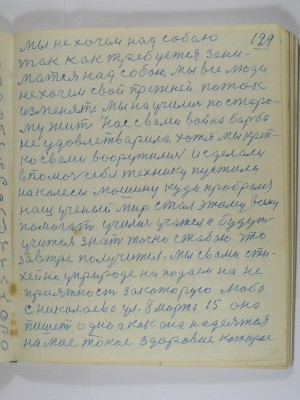 129
Мы не хочем над собаю
так как требуется зани-
матся над собаю, мы все люди
не хочем свой прежней поток
изменять. Мы научились по старо-
му жить. Нас с вами война борьба
не удовлетварила, хотя мы креп-
ко с вами вооружились и сделали
в помощ себе технику пустили
на колеса машину куда пробрались
наш ученый мир стал этому всему
помагать учились учатся и будут
учится знать точно ставаю что
завтре получится. Мы с вами сти-
хейно в природе на падаем на не
приятность за каторую Люба
с николаева ул. 8 марта 15 она
пишет одна а как она надеятся
на мое такое здоровие каторое